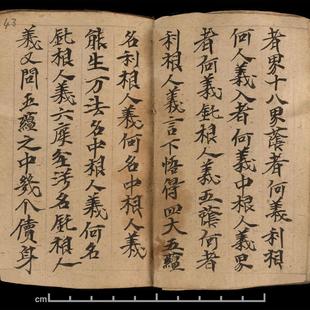 者界十八界蔭者何義利根
何人義入者何義中根人義界
者何義鈍根人義五蔭何者
利根人義言下悟得四大五蘊
名利根人義何名中根人義
能生万法名中根人義何名
鈍根人義六空淨名鈍根人
義又問五蘊之中幾个賣身
43
cm